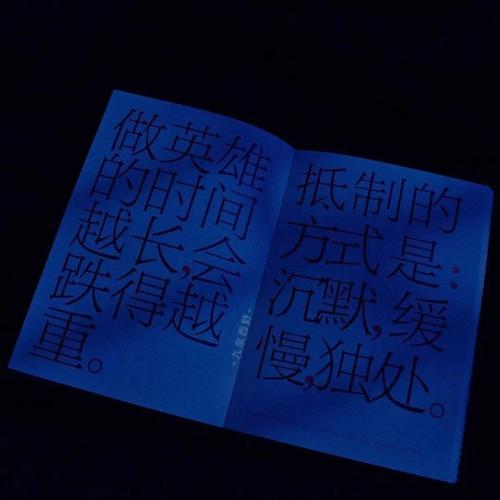 做英雄
的时间
越长,会
跌得越
重。
抵制的
方式是:
沉默,缓
慢,独处。
-九奈西野-